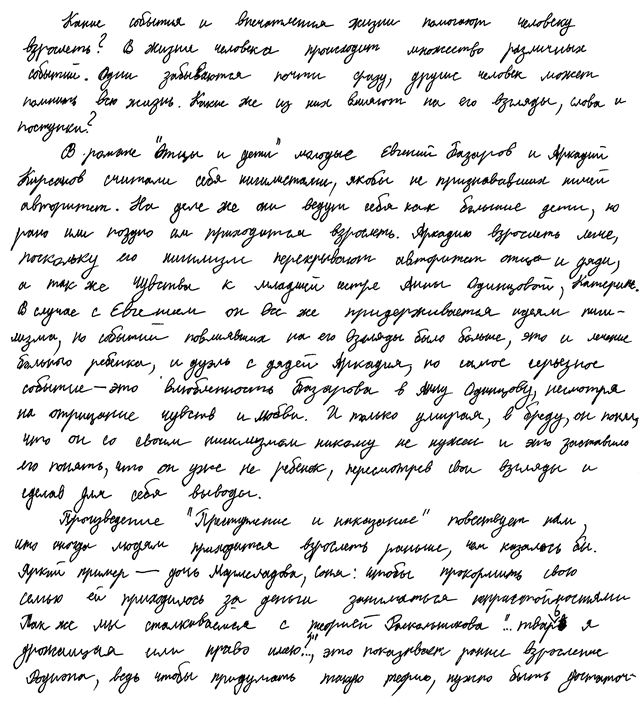 Какие события и впечатления жизни помогают человеку
взрослеть? В жизни человека происходит множество различных
событий. Одни забываются почти сразу, другие человек может
помнить всю жизнь. Какие же из них влияют на его взгляды, слова и
поступки?
В романе "Отцы и дети" молодые Евгений Базаров и Аркадий
Кирсанов считали себя нигилистами, якобы не признававших ничей
авторитет. На деле же они ведут себя как большие дети, но
рано или поздно им приходится взрослеть. Аркадию взрослеть легче,
поскольку его нигилизм перекрывают авторитет отца и дяди,
а так же чувства к младшей сестре Анны Одинцовой, Катерине.
В случае с Евгением он все же придерживается идеям ниги-
лизма, но событий повлиявших на его взгляды было больше, это и лечение
больного ребенка, и дуэль с дядей Аркадия, но самое серьезное
событие — это влюбленность Базарова в Анну Одинцову, несмотря
на отрицание чувств и любви. И только умирая, в бреду, он понял,
что он со своим нигилизмом никому не нужен и это заставило
его понять, что он уже не ребенок, пересмотрев свои взгляды и
сделав для себя выводы.
Произведение "Преступление и наказание" повествует нам,
что иногда людям приходится взрослеть раньше, чем казалось бы.
Яркий пример — дочь Мармеладова, Соня: чтобы прокормить свою
семью ей приходилось за деньги заниматься непристойностями
Так же мы сталкиваемся с теорией Раскольникова "... тварь я
дрожащая или право имею?", это показывает раннее взросление
Родиона, ведь чтобы придумать такую теорию, нужно быть достаточ-